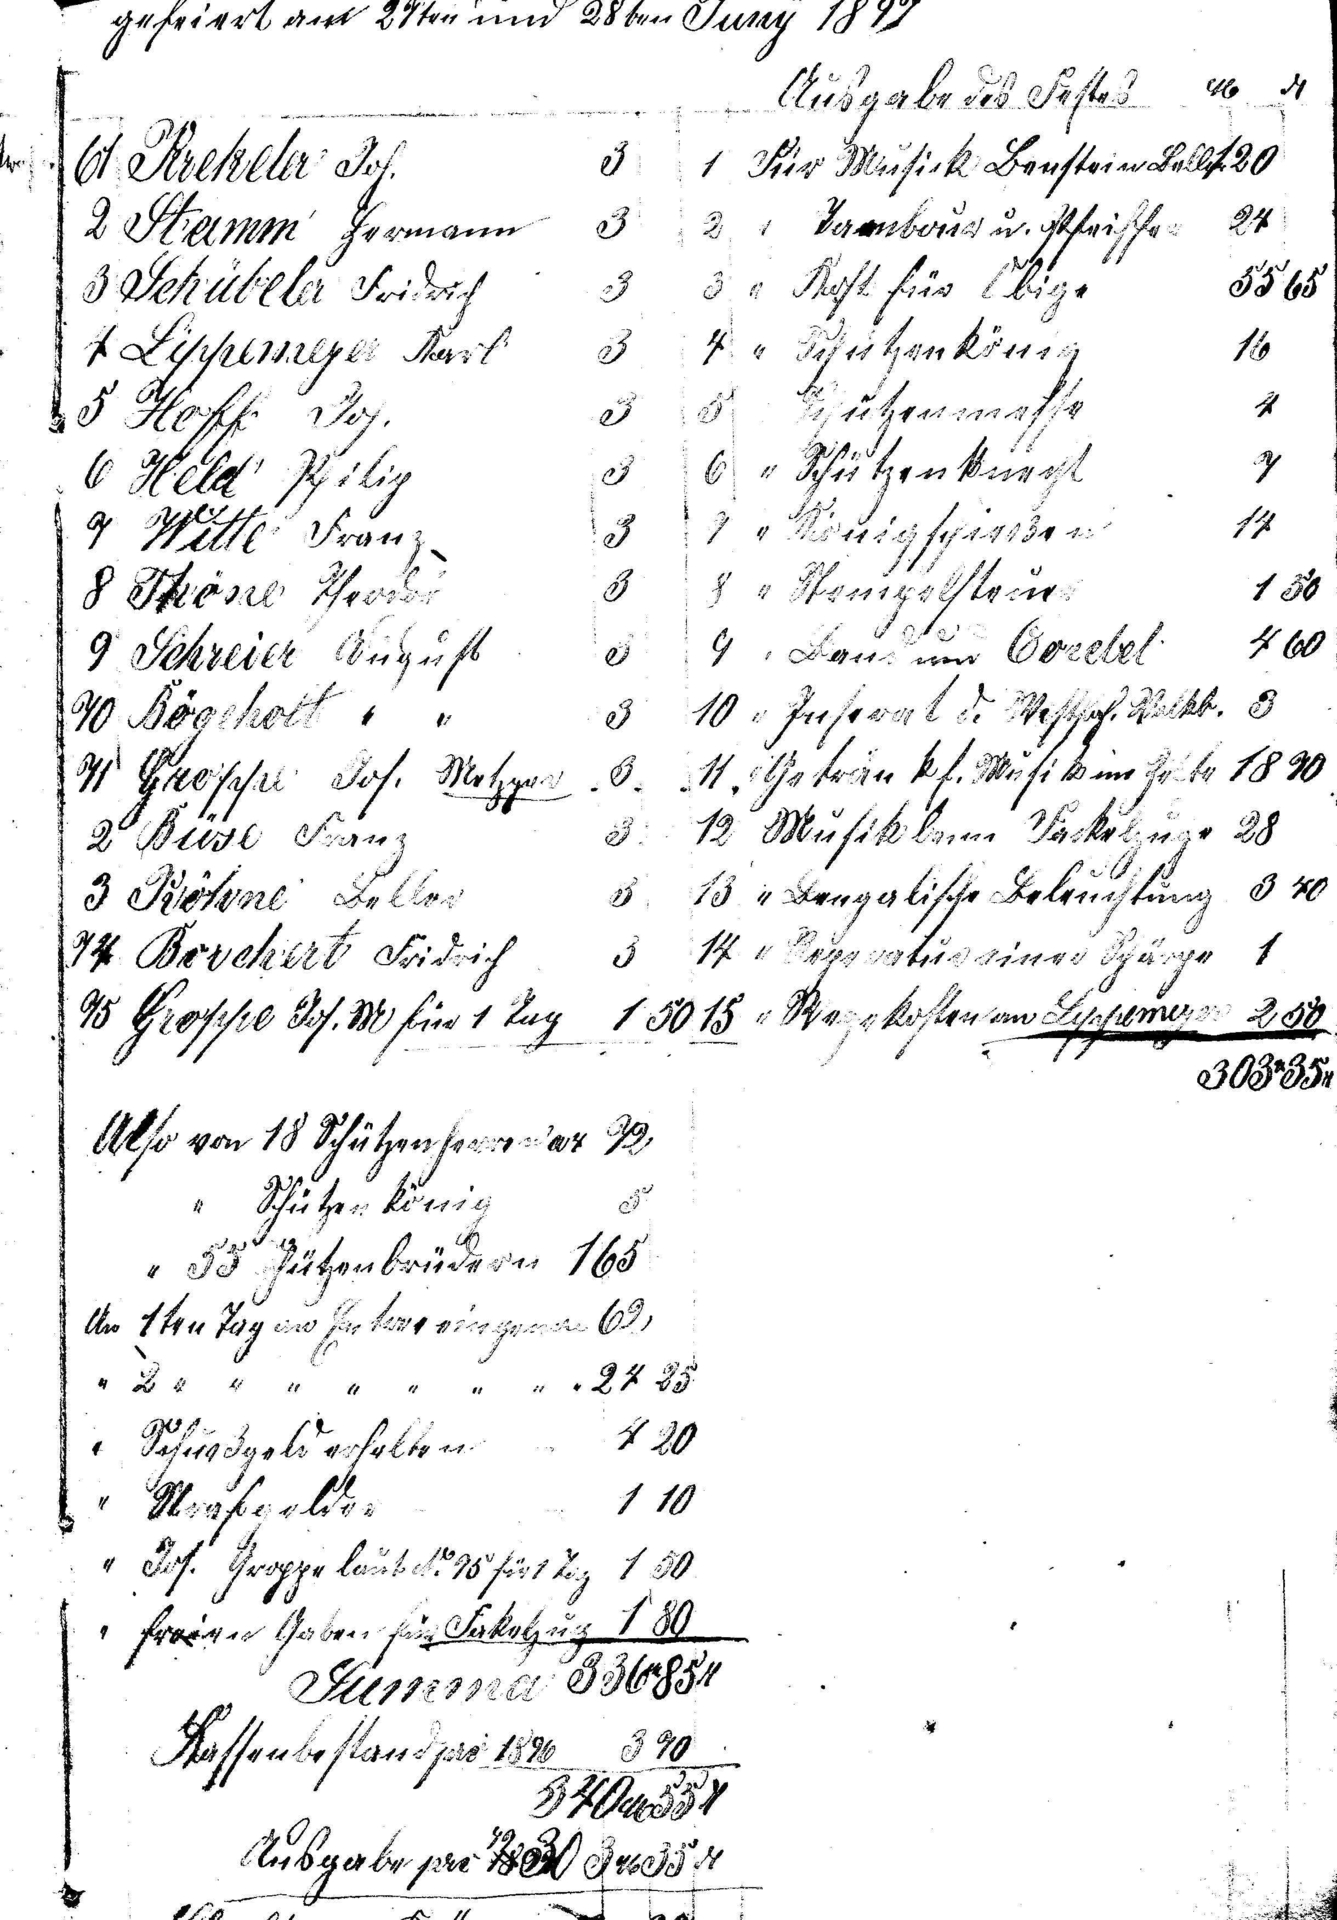 gefeiert am 27ten und 28ten Juny 1897
Ausgabe des Festes M ₰
61 Krekeler Joh. 3
2 Stamm Hermann 3
3 Schübeler Fridrich 3
4 Lippemeyer Karl 3
5 Hoff Joh. 3
6 Held Philip 3
7 Witte Franz 3
8 Thöne Theodor 3
9 Schreier August 3
70 Bögeholt " " 3
71 Groppe Jos. Metzger 3
2 Büse Franz 3
3 Beller 3
74 Borchert Fridrich 3
75 Groppe Jos. M für 1 Tag 1 50
1 Für Musick Benstein 120
2 " Tambour u. Pfeiffer 24
3 " Kost für Obige 55 65
4 " Schützenkönig 16
5 Schützenmesse 4
6 " Schützenknecht 7
7 " Königschießen 14
8 " Stempelsteuer 1 50
9 " Band und 4 60
10 " Inserat d. Westfäl. Volkb. 3
11 " Getränk f. Musik im Zelte 18 70
12 Musik beim Fackelzuge 28
13 " Bengalische Beleuchtung 3 40
14 " Reperatur einer Schärpe 1
15 " Wegekosten an Lippemeyer 2 50
303 M 35 ₰
Also von 18 Schützenherren a 4 72
" Schützenkönig 5
" 55 Schützenbrüdern 165
An 1ten Tag an Entree eingenom 62
" 2 " " " " " " " 24 25
" Schußgeld erhalten 4 20
" Strafgelder 1 10
" Jos. Groppe laut No. 75 für 1 Tag 1 50
" freien Gaben für Fakelzug 1 80
Summa 336 M 85 ₰
Kassenbestand pro 1896 3 70
340 M 55 ₰
Ausgabe pro 303 M 35 ₰